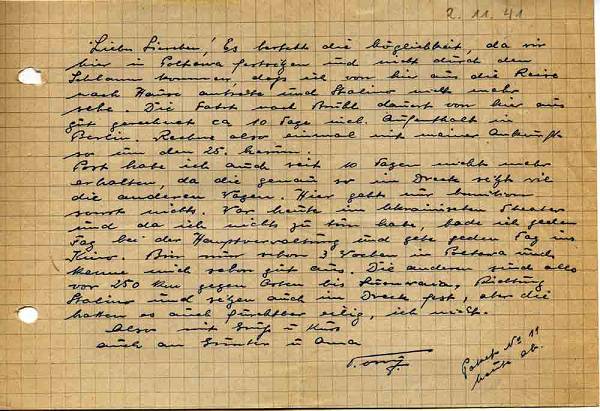 2.11.41
Liebes Lieschen! Es besteht die Möglichkeit, da wir
hier in Poltawa festsitzen und nicht durch den
Schlamm kommen, daß ich von hier aus die Reise
nach Hause antrete und Stalino nicht mehr
sehe. Die Fahrt nach Brühl dauert von hier aus
gut gerechnet ca 10 Tage incl. Aufenthalt in
Berlin. Rechne also einmal mit meiner Ankunft
so um den 25. herum.
Post habe ich auch seit 10 Tagen nicht mehr
erhalten, da die genau so im Dreck sitzt wie
die anderen Wagen. Hier geht nur Munition
sonst nichts. War heute im Ukrainischen Theater
und da ich nichts zu tun habe, bade ich jeden
Tag bei der Hauptverwaltung und gehe jeden Tag ins
Kino. Bin nur schon 3 Wochen in Poltawa und
kenne mich schon gut aus. Die anderen sind alle
vor 250 Km gegen Osten bis Richtung
Stalino und sitzen auch im Dreck fest, aber die
hatten es auch furchtbar eilig, ich nicht.
Also mit Gruß u Kuss
auch an Günter u Oma
Paket No 11
heute ab.